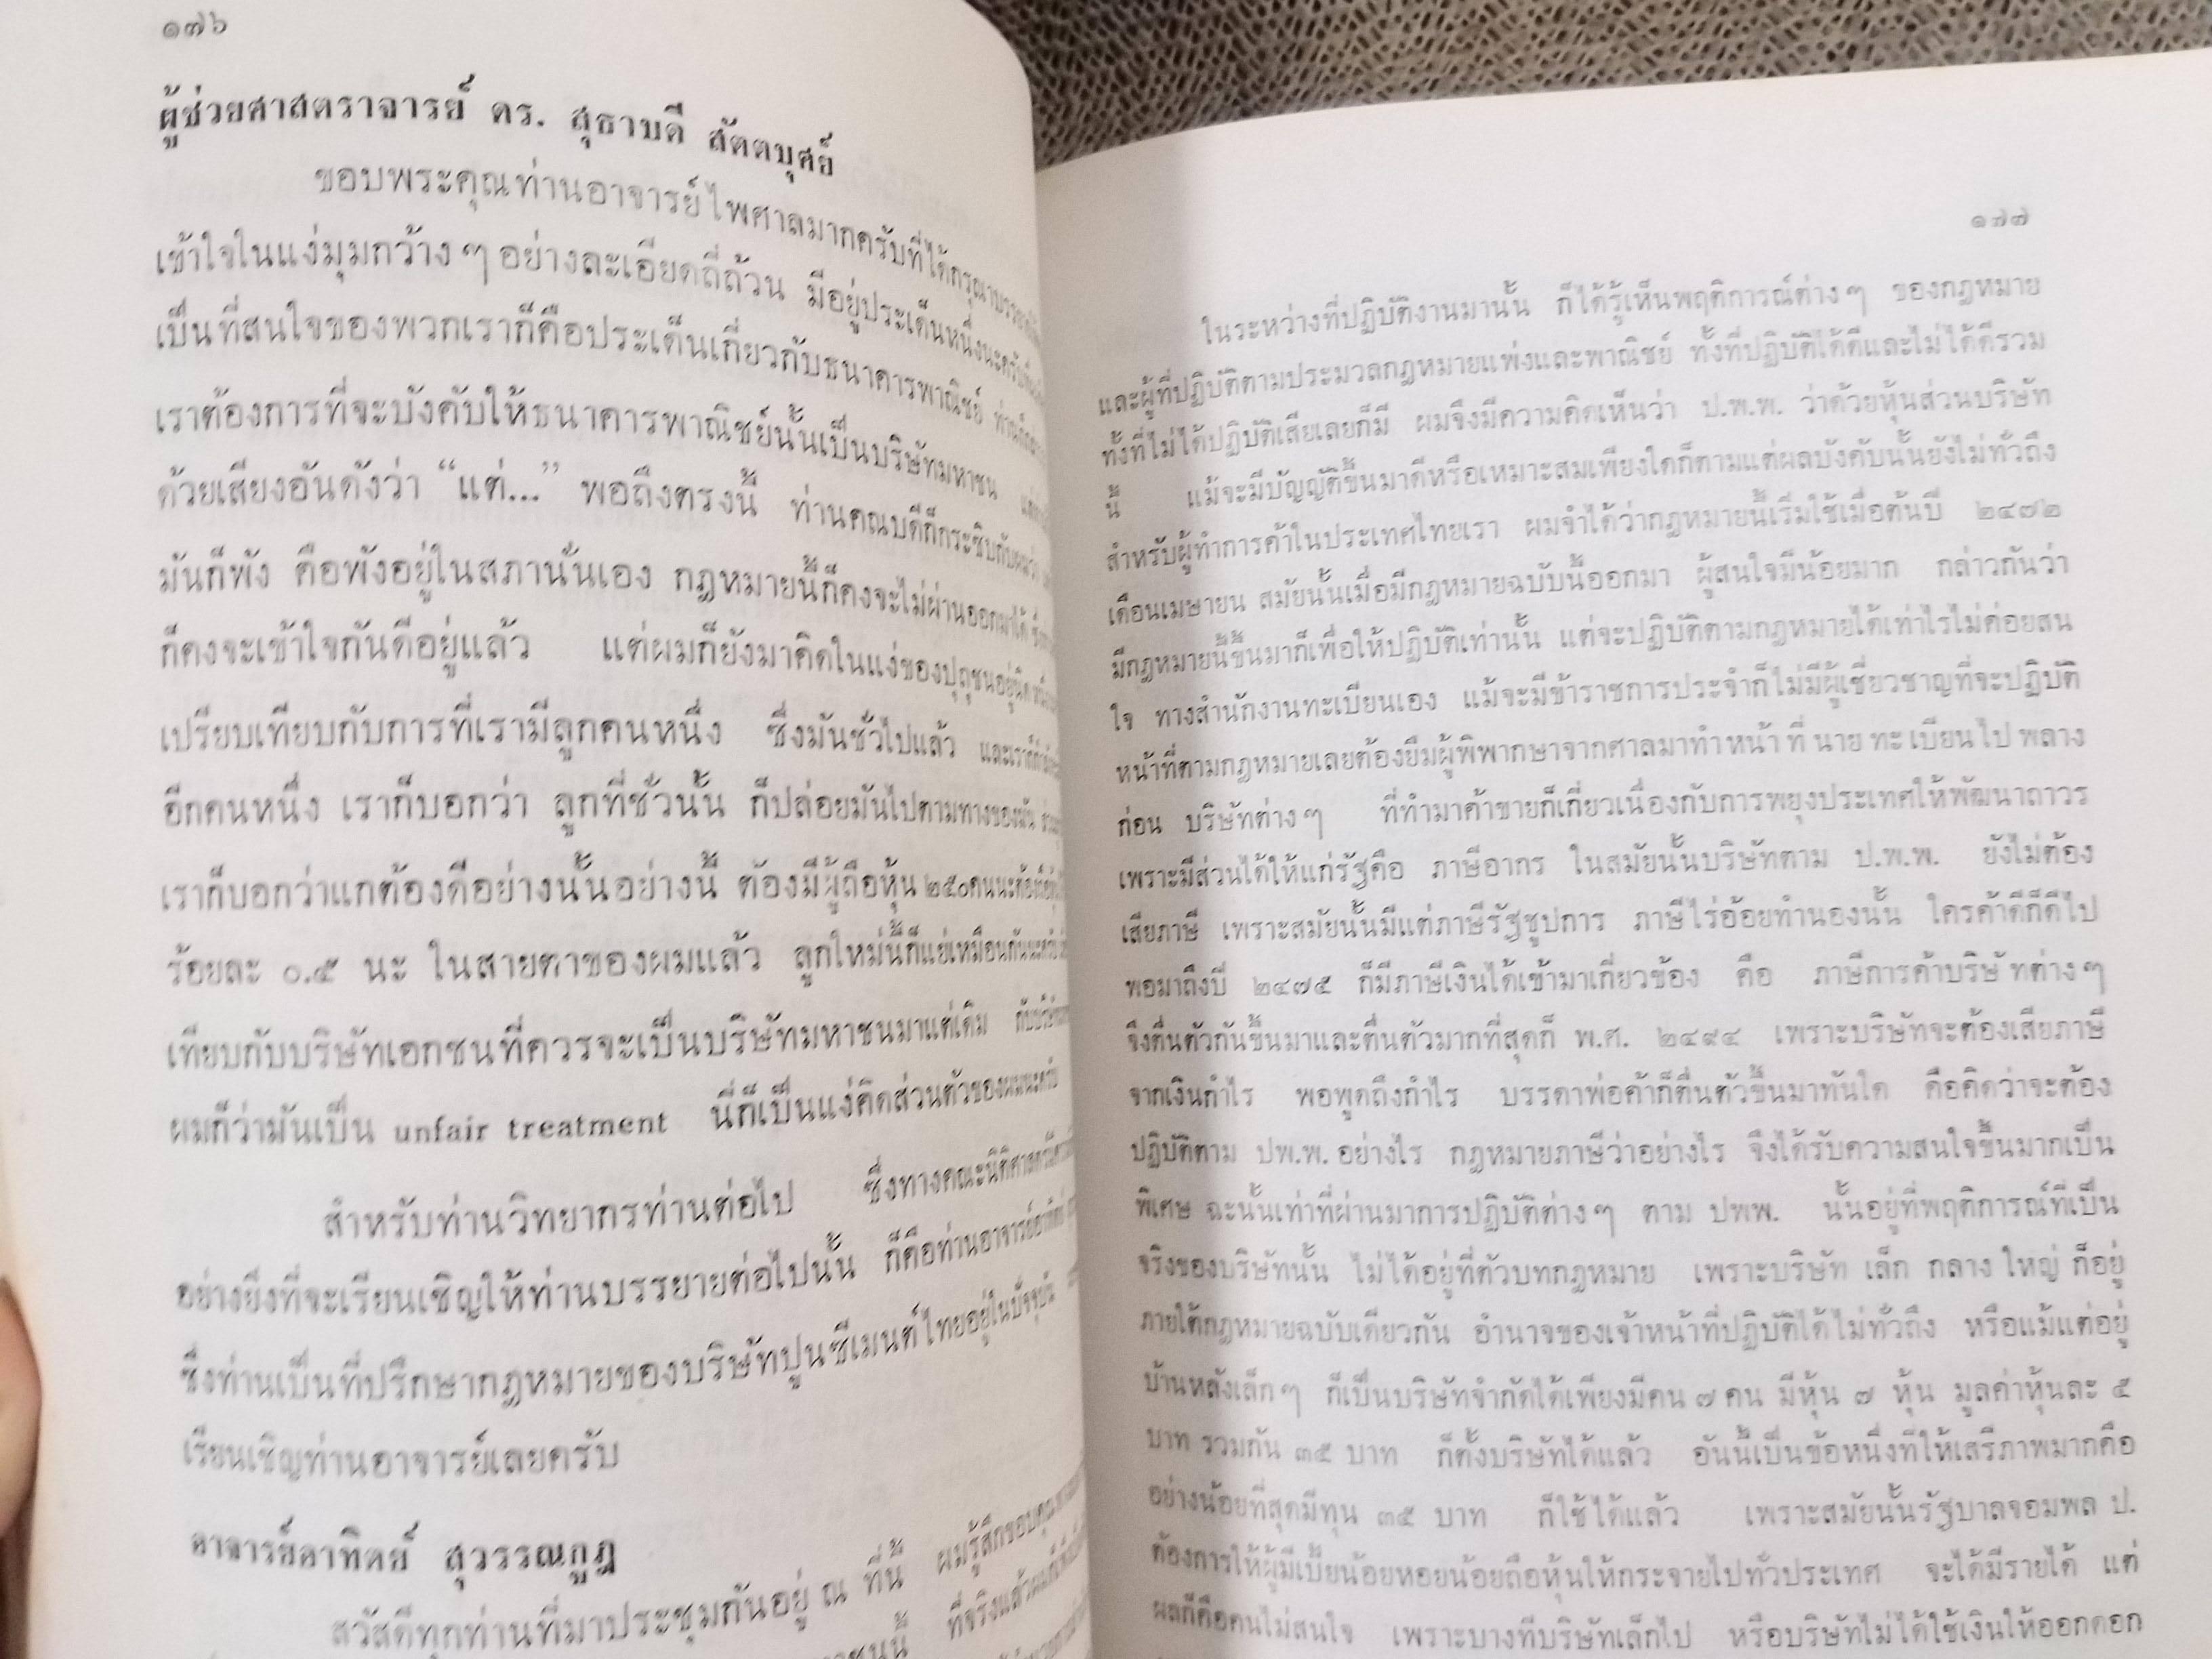 ๑๗๖
ผู้ช่วยศาสตราจารย์ ดร. สุธาบดี สัตตบุศย์
ขอบพระคุณท่านอาจารย์ไพศาลมากครับที่ได้กรุณา
เข้าใจในแง่มุมกว้าง ๆ อย่างละเอียดถี่ถ้วน มีอยู่ประเด็นหนึ่งนะครับ
เป็นที่สนใจของพวกเราก็คือประเด็นเกี่ยวกับธนาคารพาณิชย์
เราต้องการที่จะบังคับให้ธนาคารพาณิชย์นั้นเป็นบริษัทมหาชน
ด้วยเสียงอันดังว่า “แต่...” พอถึงตรงนี้ ท่านคณบดีก็กระซิบกับผมว่า
มันก็พัง คือพังอยู่ในสภานั่นเอง กฎหมายนี้ก็คงจะไม่ผ่านออกมาได้
ก็คงจะเข้าใจกันดีอยู่แล้ว แต่ผมก็ยังมาคิดในแง่ของปุถุชนอยู่นิด
เปรียบเทียบกับการที่เรามีลูกคนหนึ่ง ซึ่งมันชั่วไปแล้ว
อีกคนหนึ่ง เราก็บอกว่า ลูกที่ชั่วนั้น ก็ปล่อยมันไปตามทางของมัน
เราก็บอกว่าแกต้องดีอย่างนั้นอย่างนี้ ต้องมีผู้ถือหุ้น ๒๕๐คนนะ
ร้อยละ ๐.๕ นะ ในสายตาของผมแล้ว ลูกใหม่นี้ก็แย่เหมือนกันนะครับ
เทียบกับบริษัทเอกชนที่ควรจะเป็นบริษัทมหาชนมาแต่เดิม
ผมก็ว่ามันเป็น unfair treatment นี่ก็เป็นแง่คิดส่วนตัวของผมนะครับ
สำหรับท่านวิทยากรท่านต่อไป ซึ่งทางคณะนิติศาสตร์
อย่างยิ่งที่จะเรียนเชิญให้ท่านบรรยายต่อไปนั้น ก็คือท่านอาจารย์อาทิตย์
ซึ่งท่านเป็นที่ปรึกษากฎหมายของบริษัทปูนซีเมนต์ไทยอยู่ในปัจจุบัน
เรียนเชิญท่านอาจารย์เลยครับ
อาจารย์อาทิตย์ สุวรรณกูฏ
สวัสดีทุกท่านที่มาประชุมกันอยู่ ณ ที่นี้ ผมรู้สึกขอบคุณ
ที่จริงแล้วผม
๑๗๗
ในระหว่างที่ปฏิบัติงานมานั้น ก็ได้รู้เห็นพฤติการณ์ต่าง ๆ ของกฎหมาย
และผู้ที่ปฏิบัติตามประมวลกฎหมายแพ่งและพาณิชย์ ทั้งที่ปฏิบัติได้ดีและไม่ได้ดีรวม
ทั้งที่ไม่ได้ปฏิบัติเสียเลยก็มี ผมจึงมีความคิดเห็นว่า ป.พ.พ. ว่าด้วยหุ้นส่วนบริษัท
นี้ แม้จะมีบัญญัติขึ้นมาดีหรือเหมาะสมเพียงใดก็ตามแต่ผลบังคับนั้นยังไม่ทั่วถึง
สำหรับผู้ทำการค้าในประเทศไทยเรา ผมจำได้ว่ากฎหมายนี้เริ่มใช้เมื่อต้นปี ๒๔๗๒
เดือนเมษายน สมัยนั้นเมื่อมีกฎหมายฉบับนี้ออกมา ผู้สนใจมีน้อยมาก กล่าวกันว่า
มีกฎหมายนี้ขึ้นมาก็เพื่อให้ปฏิบัติเท่านั้น แต่จะปฏิบัติตามกฎหมายได้เท่าไรไม่ค่อยสน
ใจ ทางสำนักงานทะเบียนเอง แม้จะมีข้าราชการประจำก็ไม่มีผู้เชี่ยวชาญที่จะปฏิบัติ
หน้าที่ตามกฎหมายเลยต้องยืมผู้พิพากษาจากศาลมาทำหน้าที่ นาย ทะเบียนไปพลาง
ก่อน บริษัทต่าง ๆ ที่ทำมาค้าขายก็เกี่ยวเนื่องกับการพยุงประเทศให้พัฒนาถาวร
เพราะมีส่วนได้ให้แก่รัฐคือ ภาษีอากร ในสมัยนั้นบริษัทตาม ป.พ.พ. ยังไม่ต้อง
เสียภาษี เพราะสมัยนั้นมีแต่ภาษีรัฐชูปการ ภาษีไร่อ้อยทำนองนั้น ใครค้าดีก็ดีไป
พอมาถึงปี ๒๔๗๕ ก็มีภาษีเงินได้เข้ามาเกี่ยวข้อง คือ ภาษีการค้าบริษัทต่าง ๆ
จึงตื่นตัวกันขึ้นมาและตื่นตัวมากที่สุดก็ พ.ศ. ๒๔๙๔ เพราะบริษัทจะต้องเสียภาษี
จากเงินกำไร พอพูดถึงกำไร บรรดาพ่อค้าก็ตื่นตัวขึ้นมาทันใด คือคิดว่าจะต้อง
ปฏิบัติตาม ปพ.พ. อย่างไร กฎหมายภาษีว่าอย่างไร จึงได้รับความสนใจขึ้นมากเป็น
พิเศษ ฉะนั้นเท่าที่ผ่านมาการปฏิบัติต่าง ๆ ตาม ปพพ. นั้นอยู่ที่พฤติการณ์ที่เป็น
จริงของบริษัทนั้น ไม่ได้อยู่ที่ตัวบทกฎหมาย เพราะบริษัท เล็ก กลาง ใหญ่ ก็อยู่
ภายใต้กฎหมายฉบับเดียวกัน อำนาจของเจ้าหน้าที่ปฏิบัติได้ไม่ทั่วถึง หรือแม้แต่อยู่
บ้านหลังเล็ก ๆ ก็เป็นบริษัทจำกัดได้เพียงมีคน ๗ คน มีหุ้น ๗ หุ้น มูลค่าหุ้นละ ๕
บาท รวมกัน ๓๕ บาท ก็ตั้งบริษัทได้แล้ว อันนี้เป็นข้อหนึ่งที่ให้เสรีภาพมากคือ
อย่างน้อยที่สุดมีทุน ๓๕ บาท ก็ใช้ได้แล้ว เพราะสมัยนั้นรัฐบาลจอมพล ป.
ต้องการให้ผู้มีเบี้ยน้อยหอยน้อยถือหุ้นให้กระจายไปทั่วประเทศ จะได้มีรายได้ แต่
ผลก็คือคนไม่สนใจ เพราะบางทีบริษัทเล็กไป หรือบริษัทไม่ได้ใช้เงินให้ออกดอก